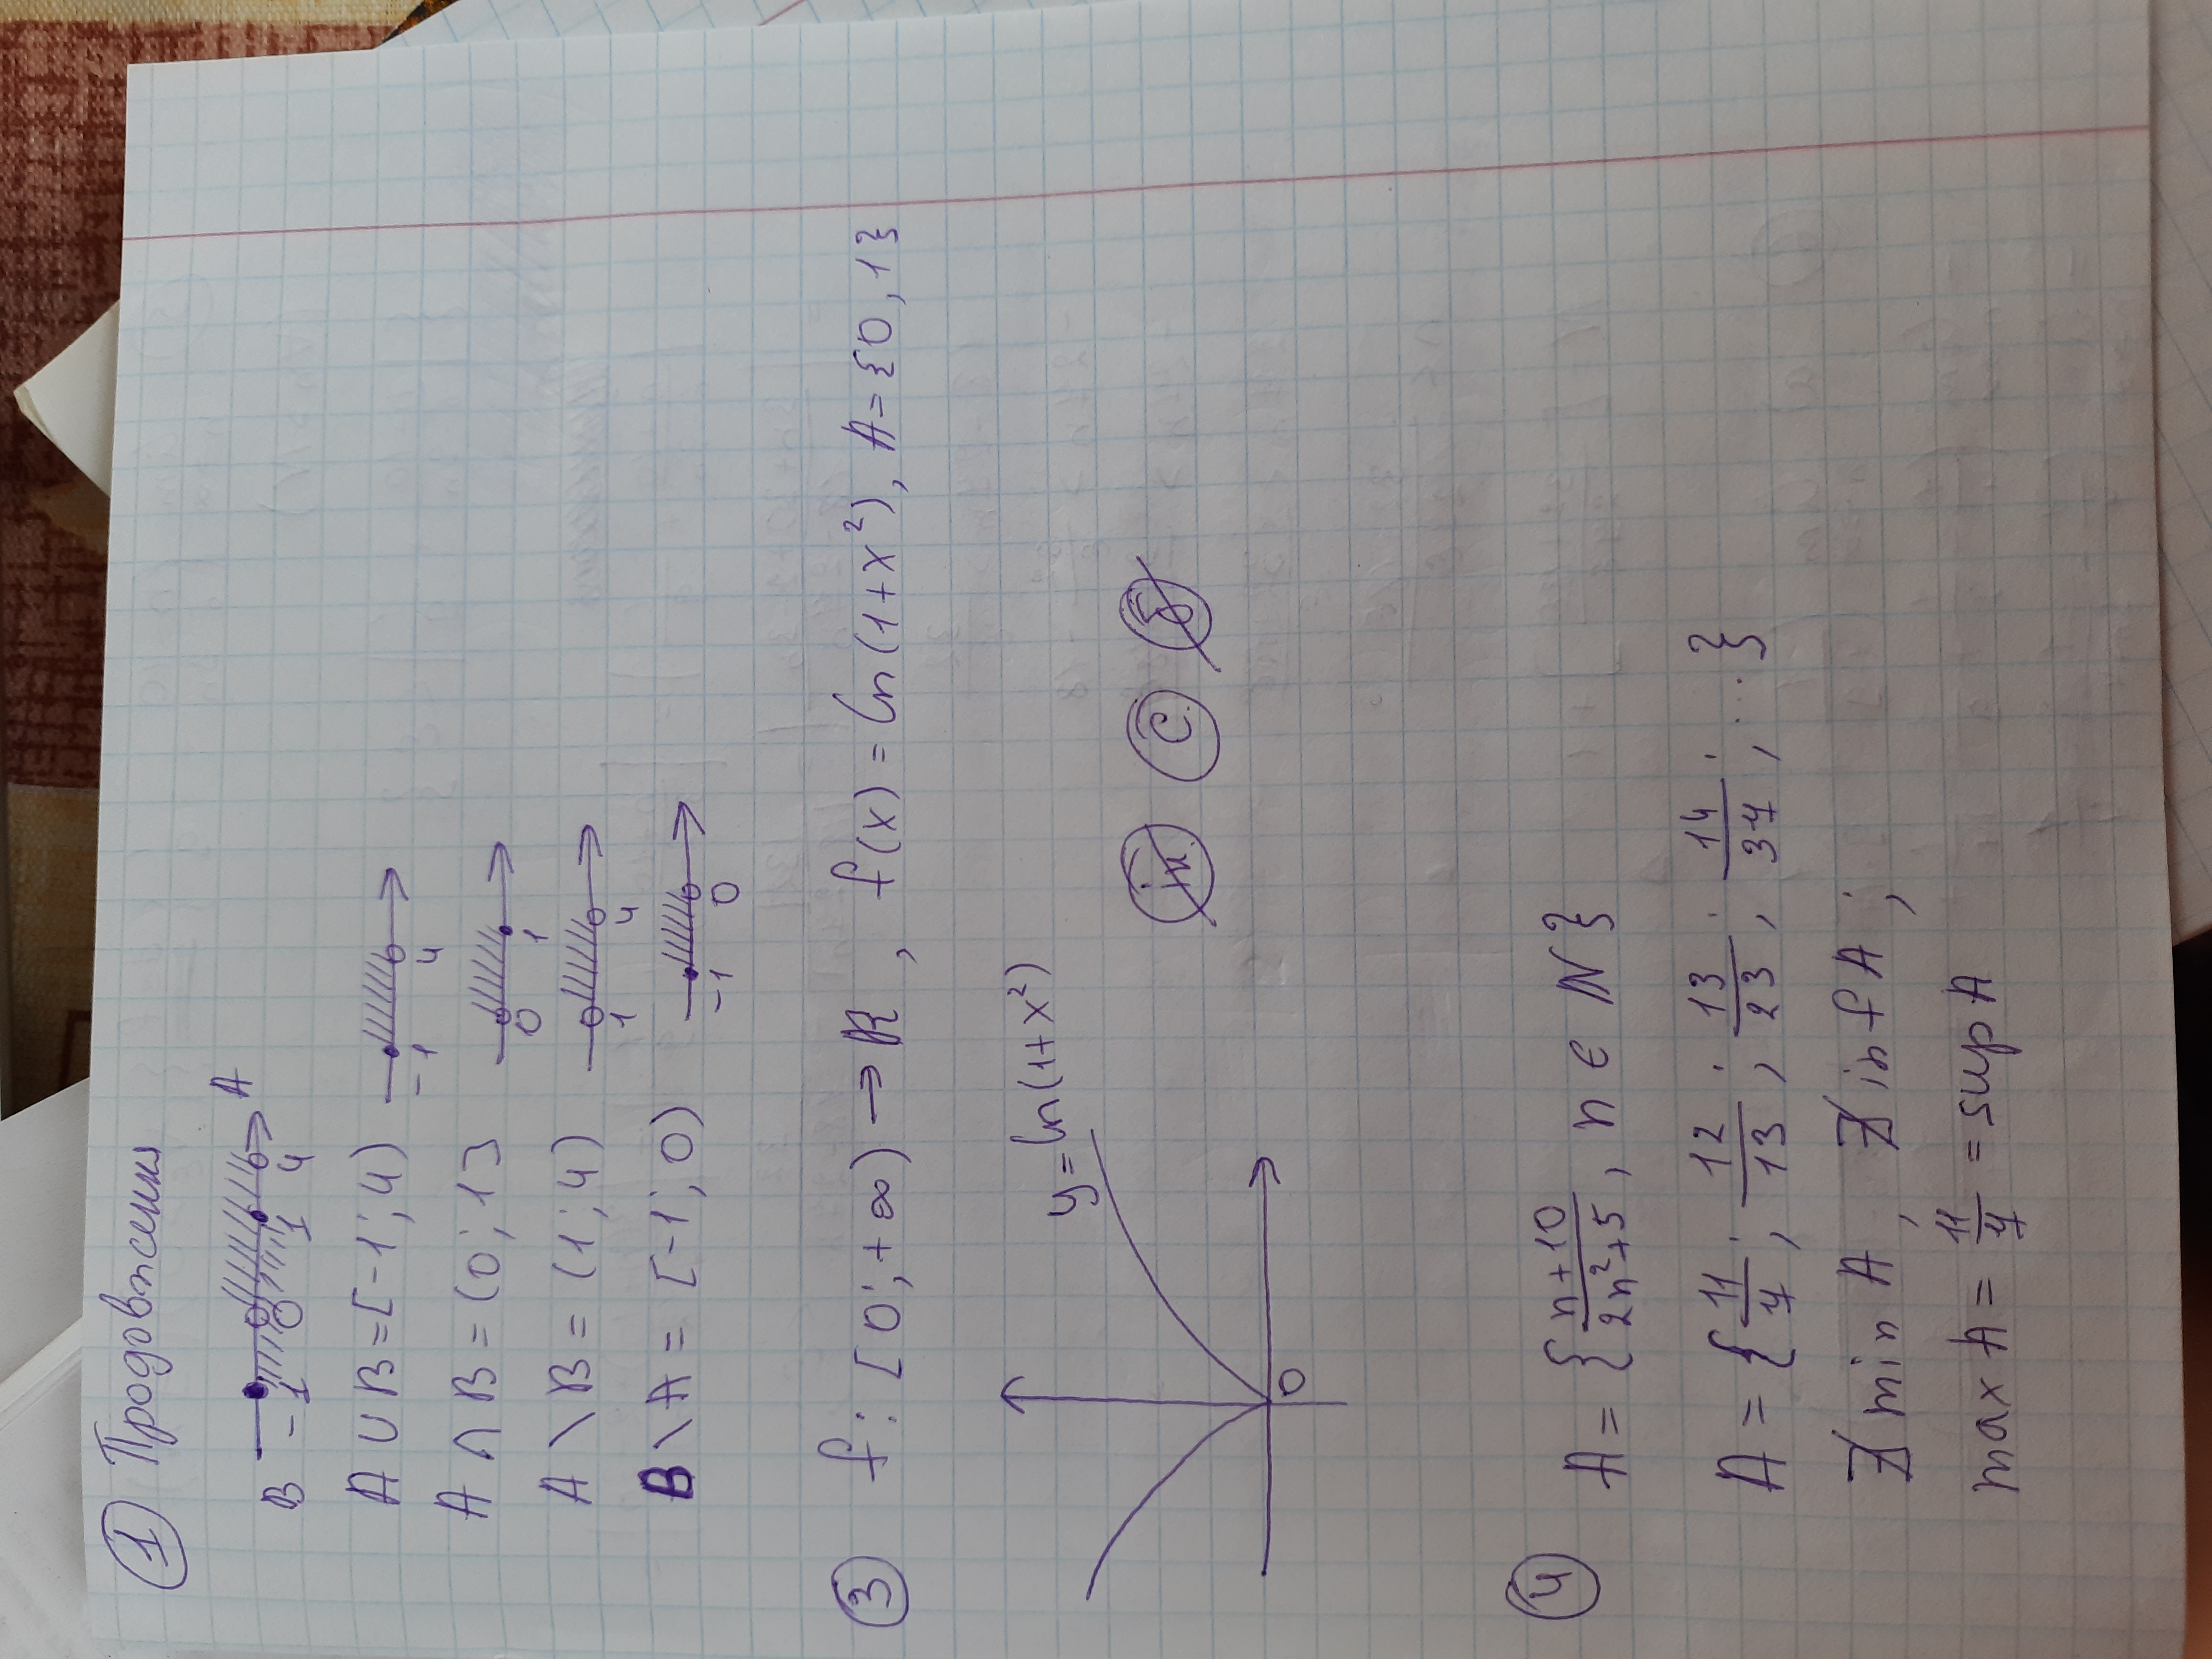 ① Продовження
A
B -1 0 1 4
A ∪ B = [-1; 4) -1 4
A ∩ B = (0; 1] 0 1
A \ B = (1; 4) 1 4
B \ A = [-1; 0) -1 0
③ f: [0; +∞) → ℝ, f(x) = ln(1+x²), A = {0, 1}
y = ln(1+x²)
ін. С. δ
0
④ A = { (n+10)/(2n²+5), n ∈ ℕ }
A = { 11/7; 12/13; 13/23; 14/37; ... }
∄ min A, ∄ inf A;
max A = 11/7 = sup A